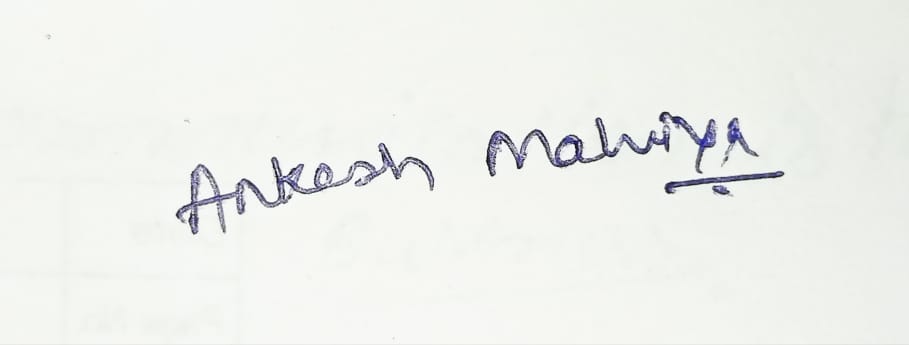 Ankesh Mahiya